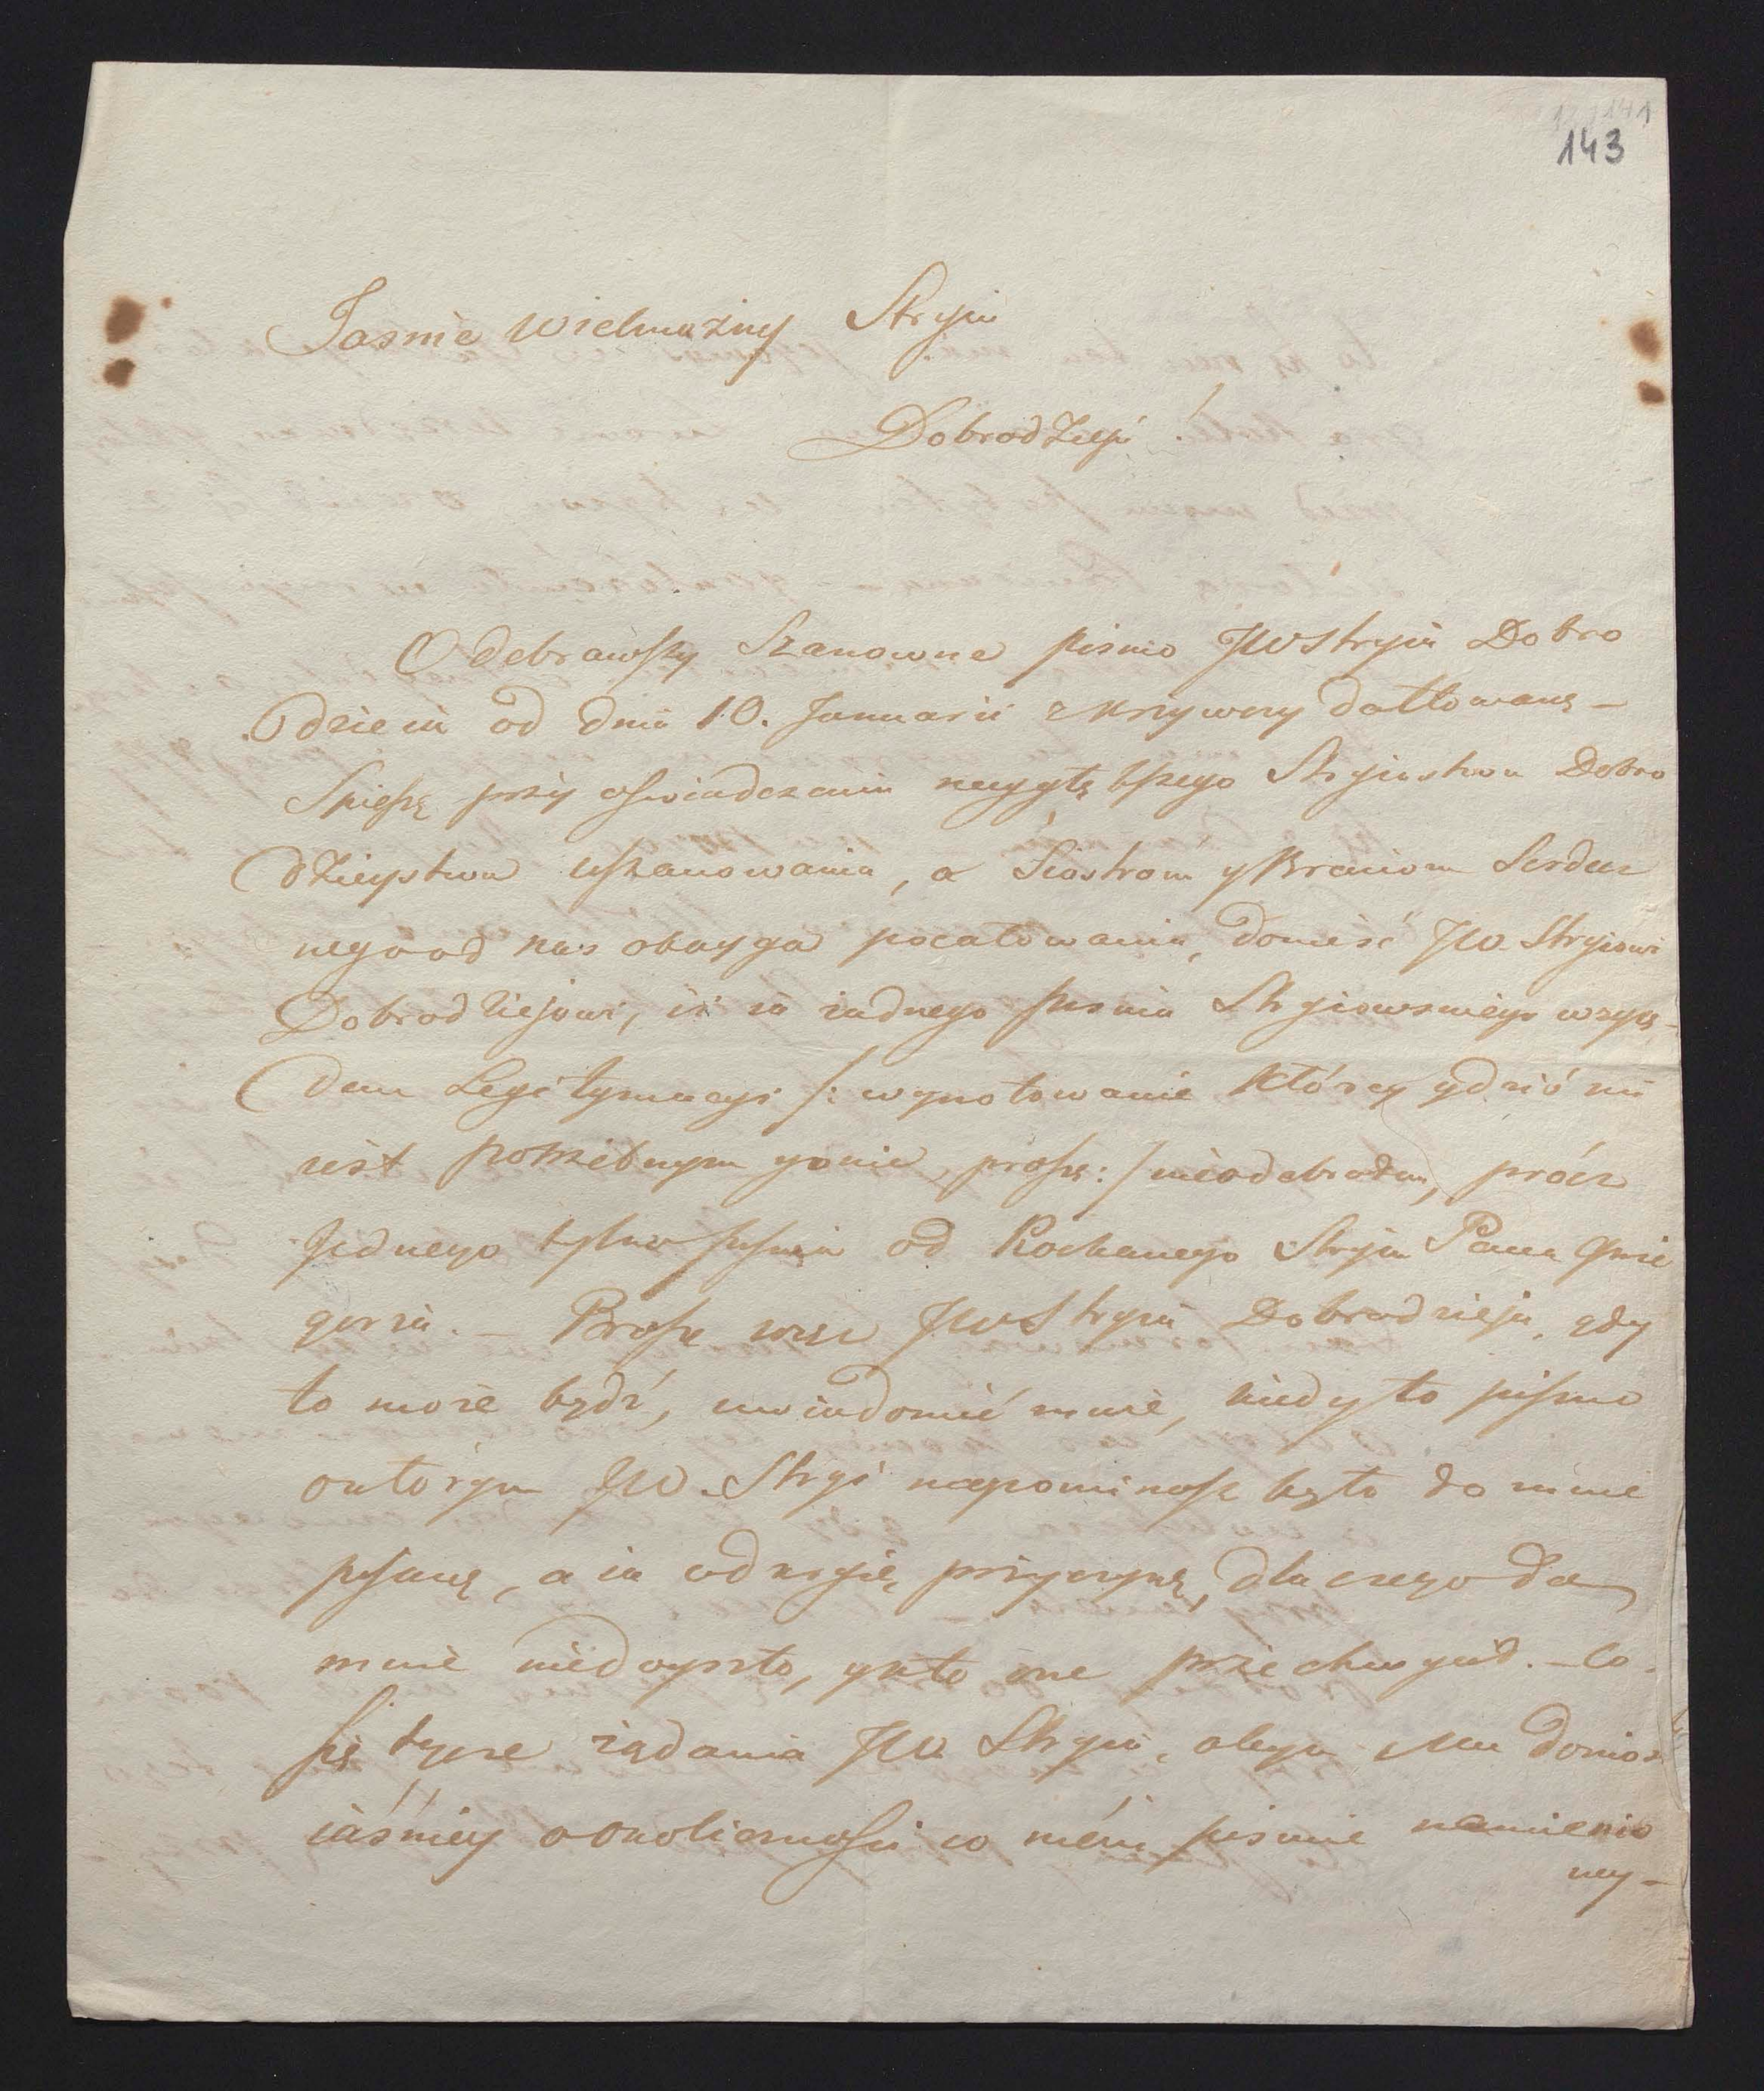 143
Jasnie Wielmożny Stryiu
Dobrodzieju!
Odebrawszy Szanowne pismo JW Stryia Dobro
dzieia od dnia 10. Januarii z Krzywczy dattowane –
Spieszę przy oswiadczeniu naygłębszego Stryiostwu Dobro
dzieystwu uszanowania, a Siostrom y Braciom Serdecz
nego od nas oboyga pocałowania, donieść JW. Stryiowi
Dobrodziejowi, iż ia żadnego pisma Stryiowskiego wzglę–
dem Legitymacyi /: wynotowanie którey gdzié mi
iest potrzebnym yonie proszę :/ nieodebrałem, prócz
Jednego tylko pisma od Kochanego Stryia Pana Grze
gorza. – Prosze więc JW Stryia Dobrodzieja, gdy
to może bydź, uwiadomić mnie, kiedy to pismo
o którym JW. Stryi napominasz było do mnie
pisane, a ia odkryię przyczynę, dla czego do
mnie niedoyszło, y kto one przechwycił. – Co
się tycze żądania JW Stryia, abym Mu doniosł
iáśniey o okoliczności w mém pismie namienio
ney –